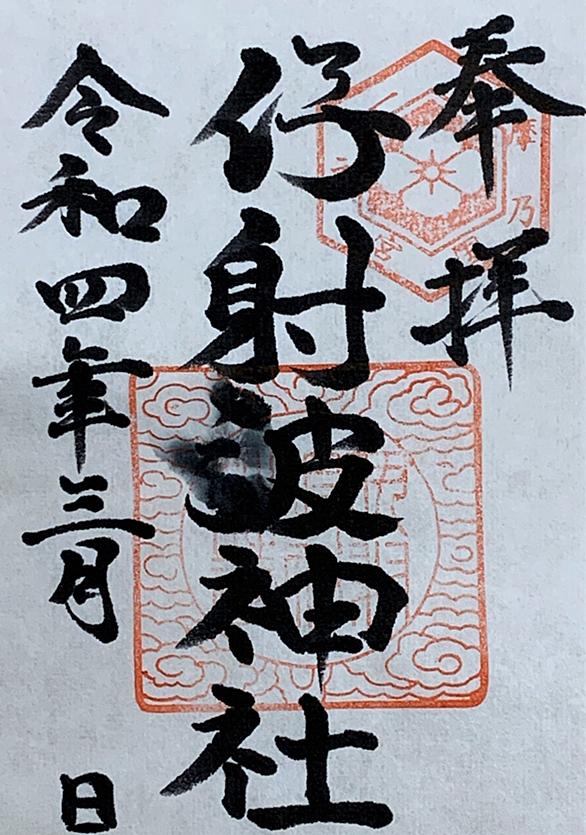 奉拝
摩乃
宮
伊射波神社
令和四年三月 日